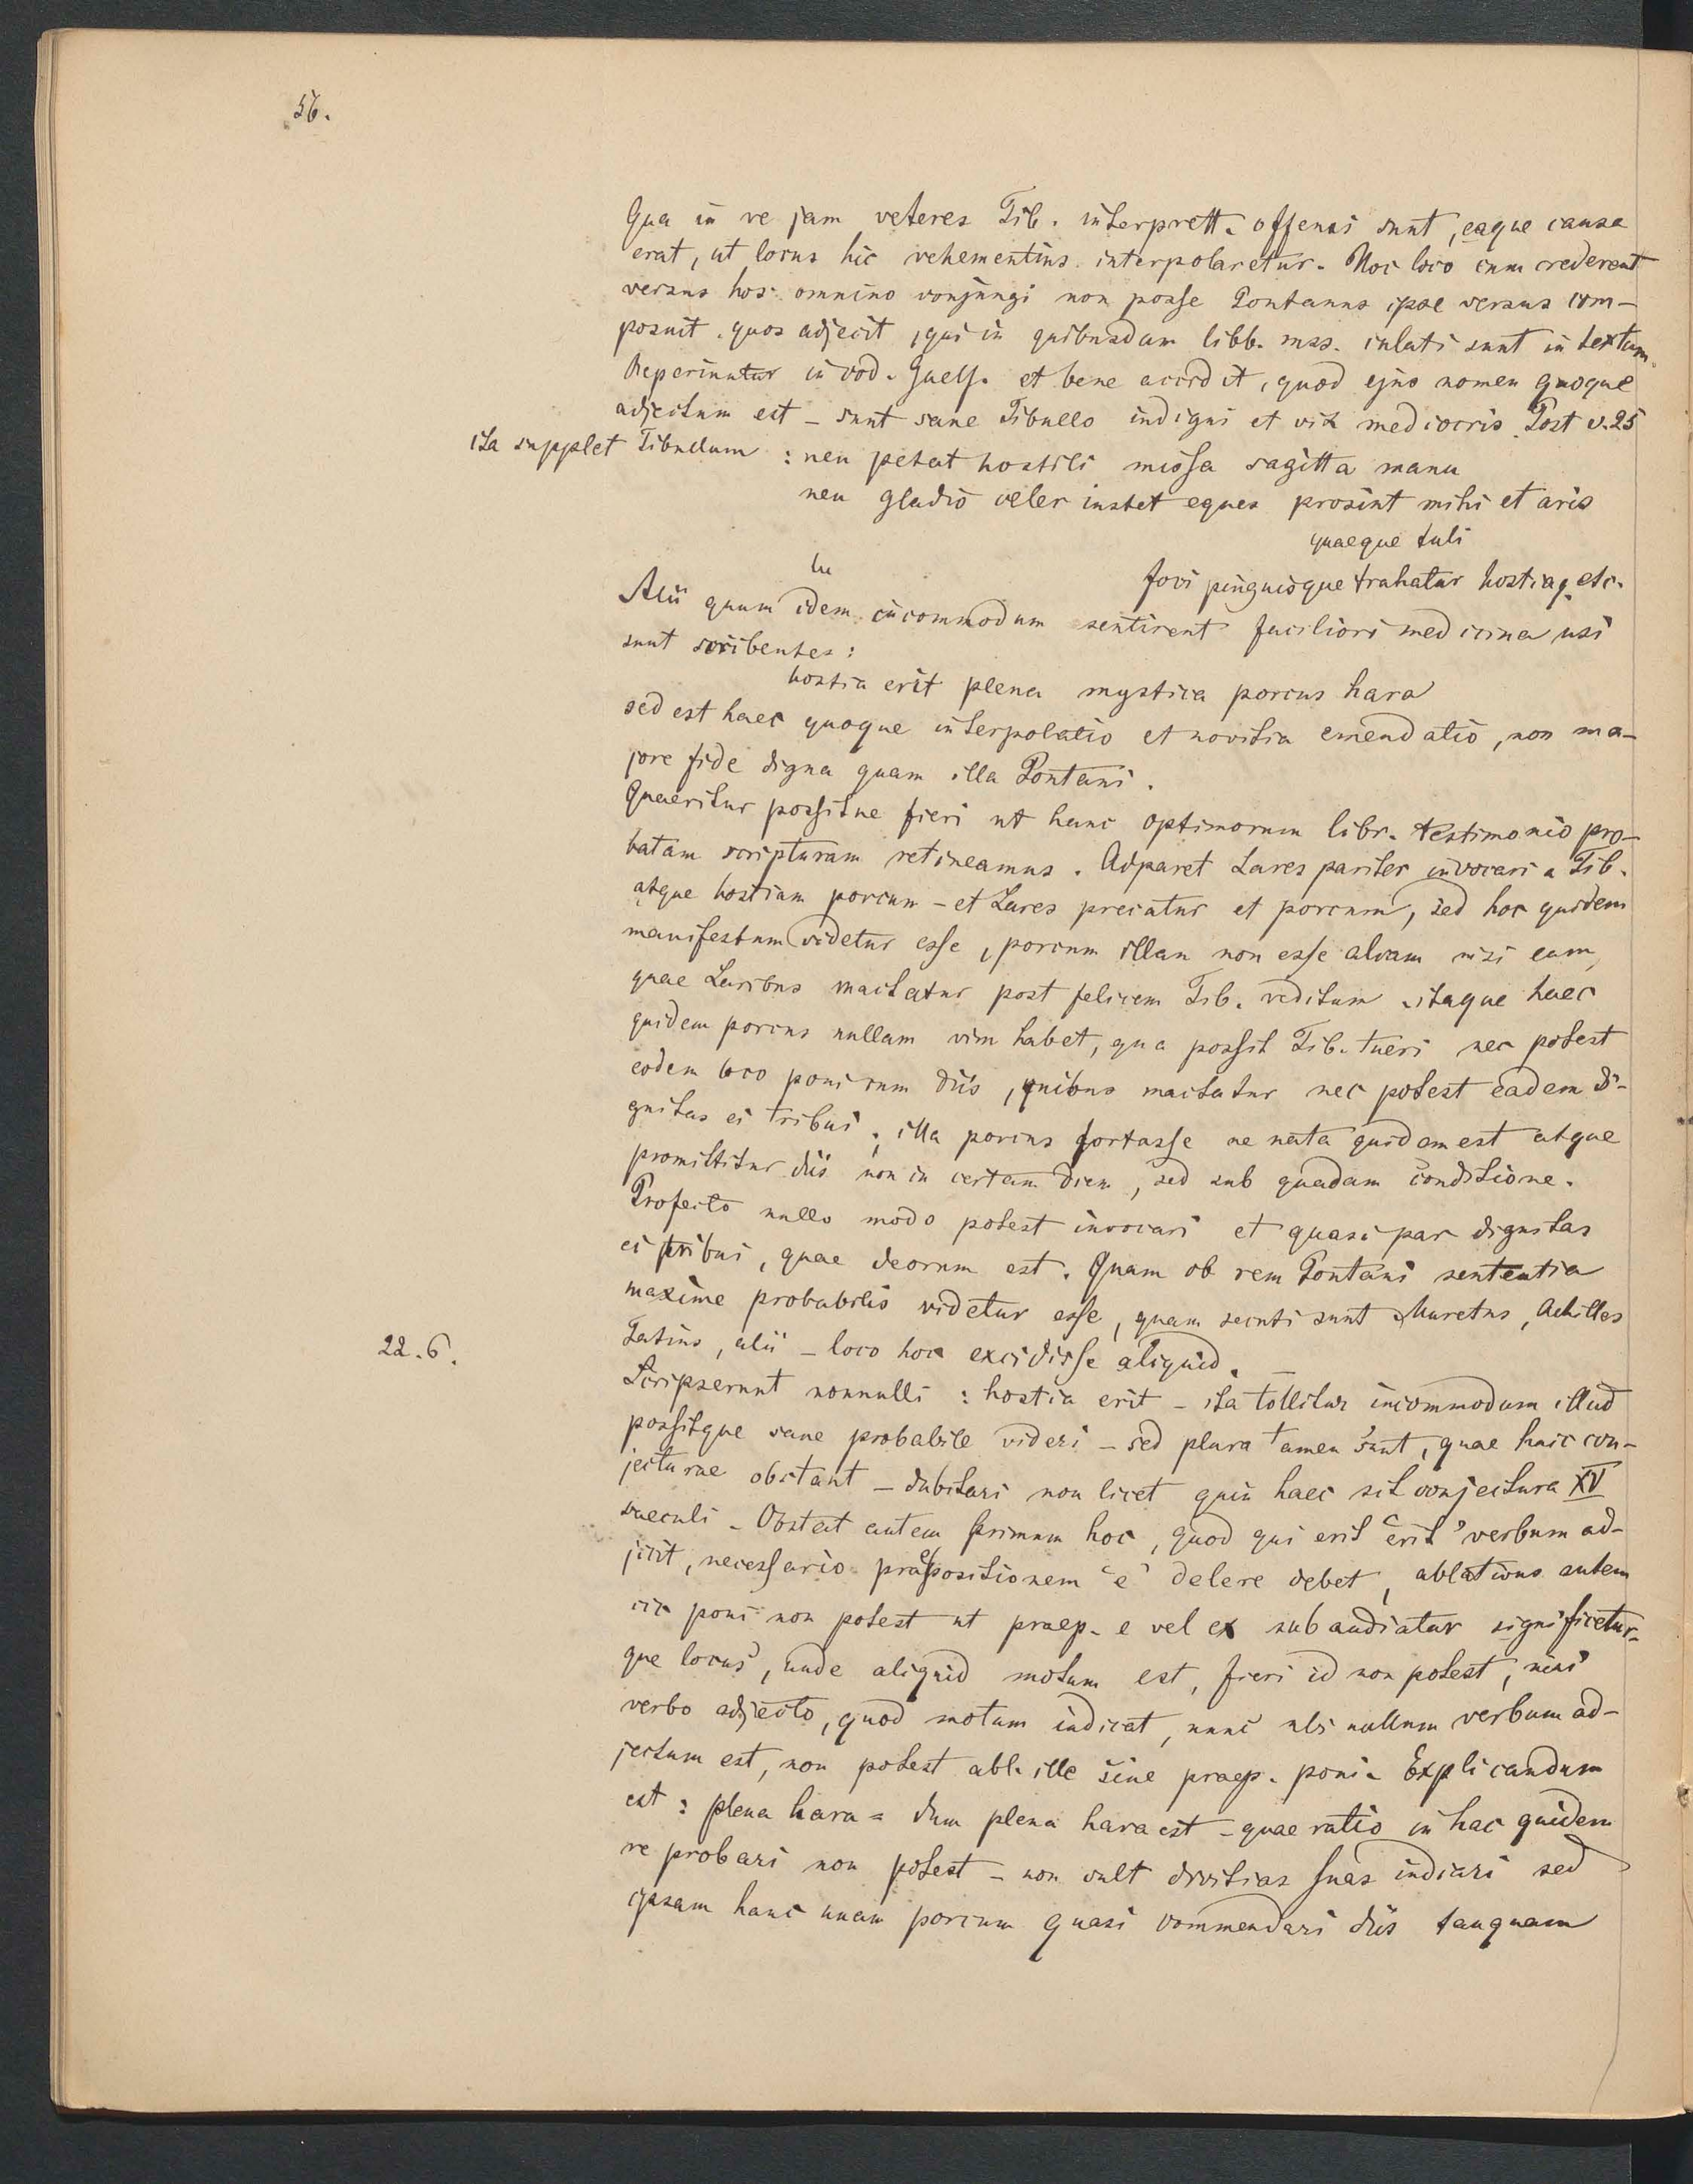 56.
Qua in re jam veteres Tib. interprett. offensi sunt, eaque causa
erat, ut locus hic vehementius interpolaretur. Hoc loco cum crederent
versus hos omnino conjungi non posse Pontanus ipse versus com-
posuit quos adjecit, qui in quibusdam libb. mss. inlati sunt in textum.
Reperiuntur in cod. Guelf. et bene accidit, quod ejus nomen quoque
adjectum est – sunt sane Tibullo indigni et vix mediocris. Post v. 25
ita supplet Tibullum : neu petat hostili missa sagitta manu
neu gladio celer instet eques prosint mihi et aris
quaeque tuli
Jovi pinguisque trahatur hostia, etc.
Alii quum idem incommodum sentirent faciliori medicina usi
sunt scribentes:
hostia erit plena mystica porcus hara
sed est haec quoque interpolatio et novitia emendatio, non ma-
jore fide digna quam illa Pontani.
Quaeritur possitne fieri ut hanc optimorum libr. testimonio pro-
batam scripturam retineamus. Adparet Lares pariter invocari a Tib.
atque hostiam porcum – et Lares precatur et porcum, sed hoc quidem
manifestum videtur esse, porcum illam non esse aliam nisi eam,
quae Laribus mactatur post felicem Tib. reditum. itaque haec
quidem porcus nullam vim habet, qua possit Tib. tueri nec potest
eodem loco poni cum diis, quibus mactatur nec potest eadem di-
gnitas ei tribui; illa porcus fortasse ne nata quidem est atque
promittitur diis non in certam diem, sed sub quadam conditione.
Profecto nullo modo potest invocari et quasi par dignitas
ei tribui, quae deorum est. Quam ob rem Pontani sententia
maxime probabilis videtur esse, quam secuti sunt Muretus, Achilles
Tatius, alii – loco hoc excidisse aliquid.
22.6.
Scripserunt nonnulli : hostia erit – ita tollitur incommodum illud
possitque sane probabile videri – sed plura tamen sunt, quae huic con-
jecturae obstant – dubitari non licet quin haec sit conjectura XV
saeculi – Obstat autem primum hoc, quod qui erit "erit" verbum ad-
jicit, necessario praepositionem "e" delere debet, ablativus autem
sic poni non potest ut praep. e vel ex subaudiatur significetur-
que locus, unde aliquid motum est, fieri id non potest, nisi
verbo adjecto, quod motum indicat, nunc ubi nullum verbum ad-
jectum est, non potest abl. ille sine praep. poni. Explicandum
est : plena hara = dum plena hara est – quae ratio in hac quidem
re probari non potest – non vult divitias suas indicari sed
ipsam hanc unam porcum quasi commendari diis tanquam